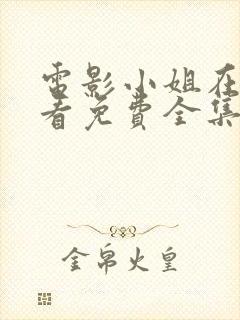 电影小姐在
看免费全集
金帛火皇